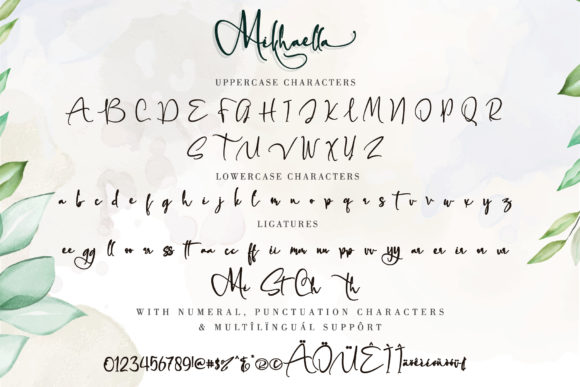 Mikhaella
UPPERCASE CHARACTERS
A B C D E F G H I J K L M N O P Q R
S T U V W X Y Z
LOWERCASE CHARACTERS
a b c d e f g h i j k l m n o p q r s t u v w x y z
LIGATURES
ee gg ll oo ss tt aa cc ff ii mm nn pp vv yy ar er ir or ur
Mi St Ch Th
WITH NUMERAL, PUNCTUATION CHARACTERS
& MULTÎLÏINGUÁL SUPPÔRT
0123456789!@#$%^&